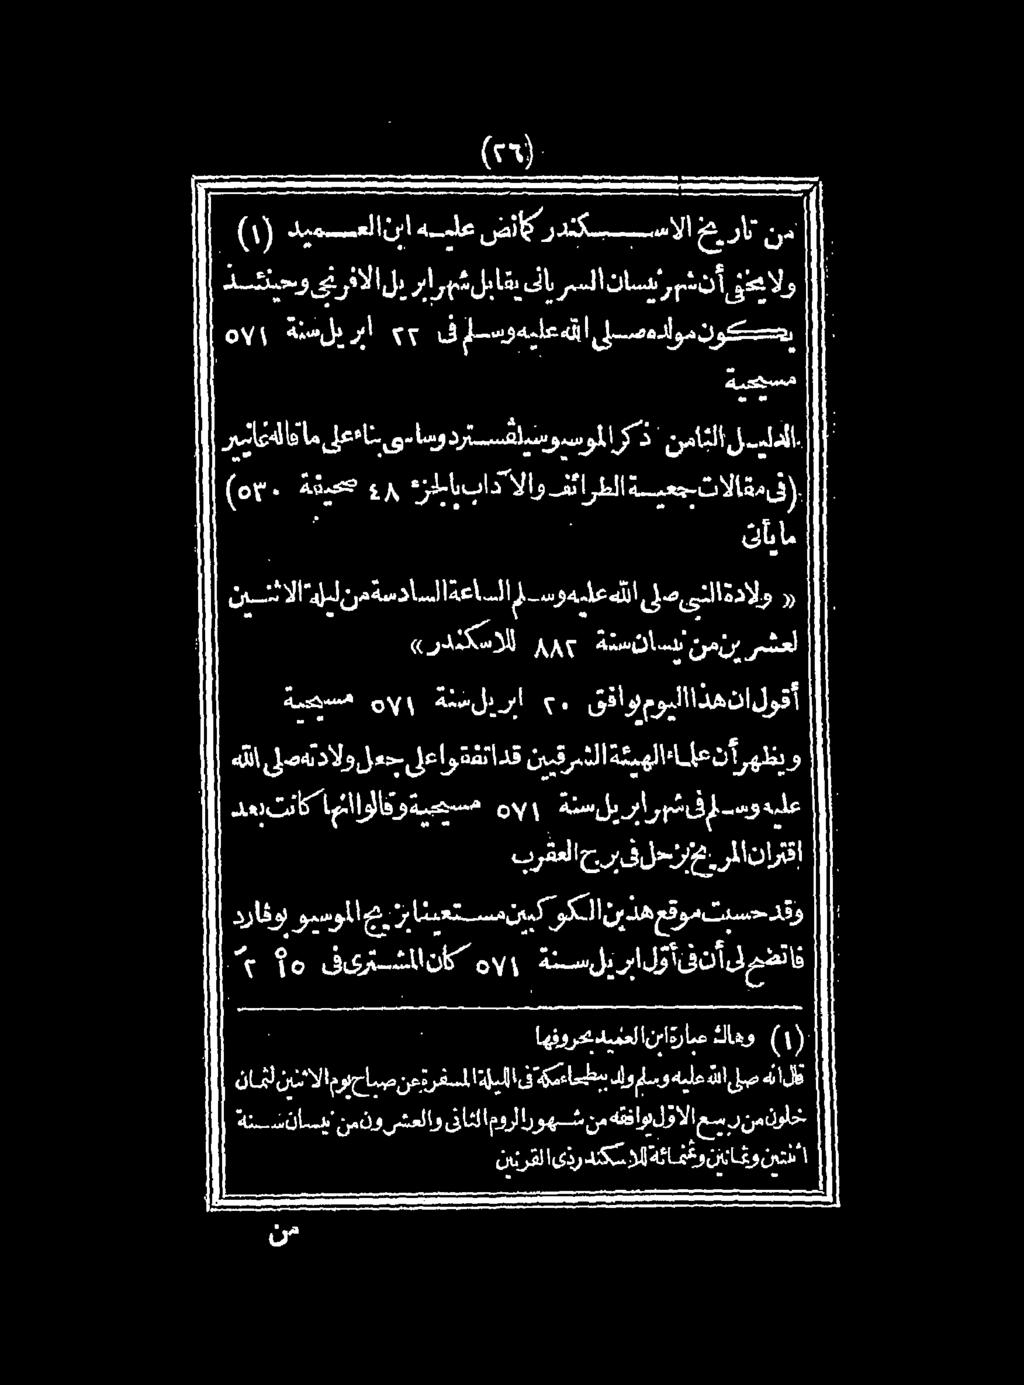 (٢٦)
من تاريخ الاسكندر كما نص عليه ابن العميد (١)
ولا يخفى أن شهر نيسان السريانى يقابل شهر ابريل الافرنجى وحينئذ
يكون مولده صلى الله عليه وسلم فى ٢٢ ابريل سنة ٥٧١
مسيحية
الدليل الثامن ذكر الموسيو سيلفستر دوساسى بناء على ما قاله غانيير
(فى مقالات جمعية الطرائف والآداب بالجزء ٤٨ صحيفة ٥٣٠)
ما يأتى
« ولادة النبى صلى الله عليه وسلم الساعة السادسة من ليلة الاثنين
لعشرين من نيسان سنة ٨٨٢ للاسكندر »
أقول ان هذا اليوم يوافق ٢٠ ابريل سنة ٥٧١ مسيحية
ويظهر أن علماء الهيئة الشرقيين قد اتفقوا على جعل ولادته صلى الله
عليه وسلم فى شهر ابريل سنة ٥٧١ مسيحية وقالوا انها كانت بعد
اقتران المريخ بزحل فى برج العقرب
وقد حسبت موقع هذين الكوكبين مستعينا بزيج الموسيو بوفارد
فاتضح لى أن فى أول ابريل سنة ٥٧١ كان المشترى فى ١٥° ٢َ
(١) وهاك عبارة ابن العميد بحروفها
قال انه صلى الله عليه وسلم ولد ببطحاء مكة فى الليلة المسفرة عن صباح يوم الاثنين لثمان
خلون من ربيع الاول يوافقه من شهور الروم الثانى والعشرون من نيسان سنة
اثنتين وثمانين وثمنمائة للاسكندر ذى القرنين
من